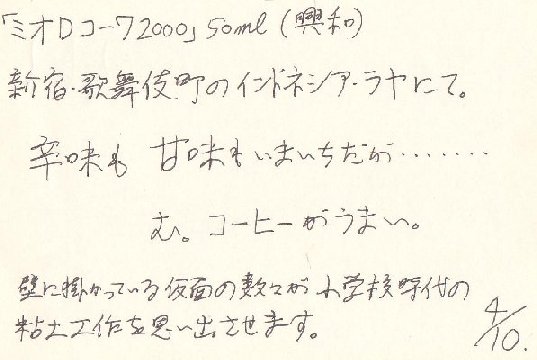 「ミオDコーワ2000」50ml(興和)
新宿・歌舞伎町のインドネシア・ラヤにて。
辛味も 甘味もいまいちだが‥‥‥‥
む。コーヒーがうまい。
壁に掛かっている仮面の数々が小学校時代の
粘土工作を思い出させます。
4/10.